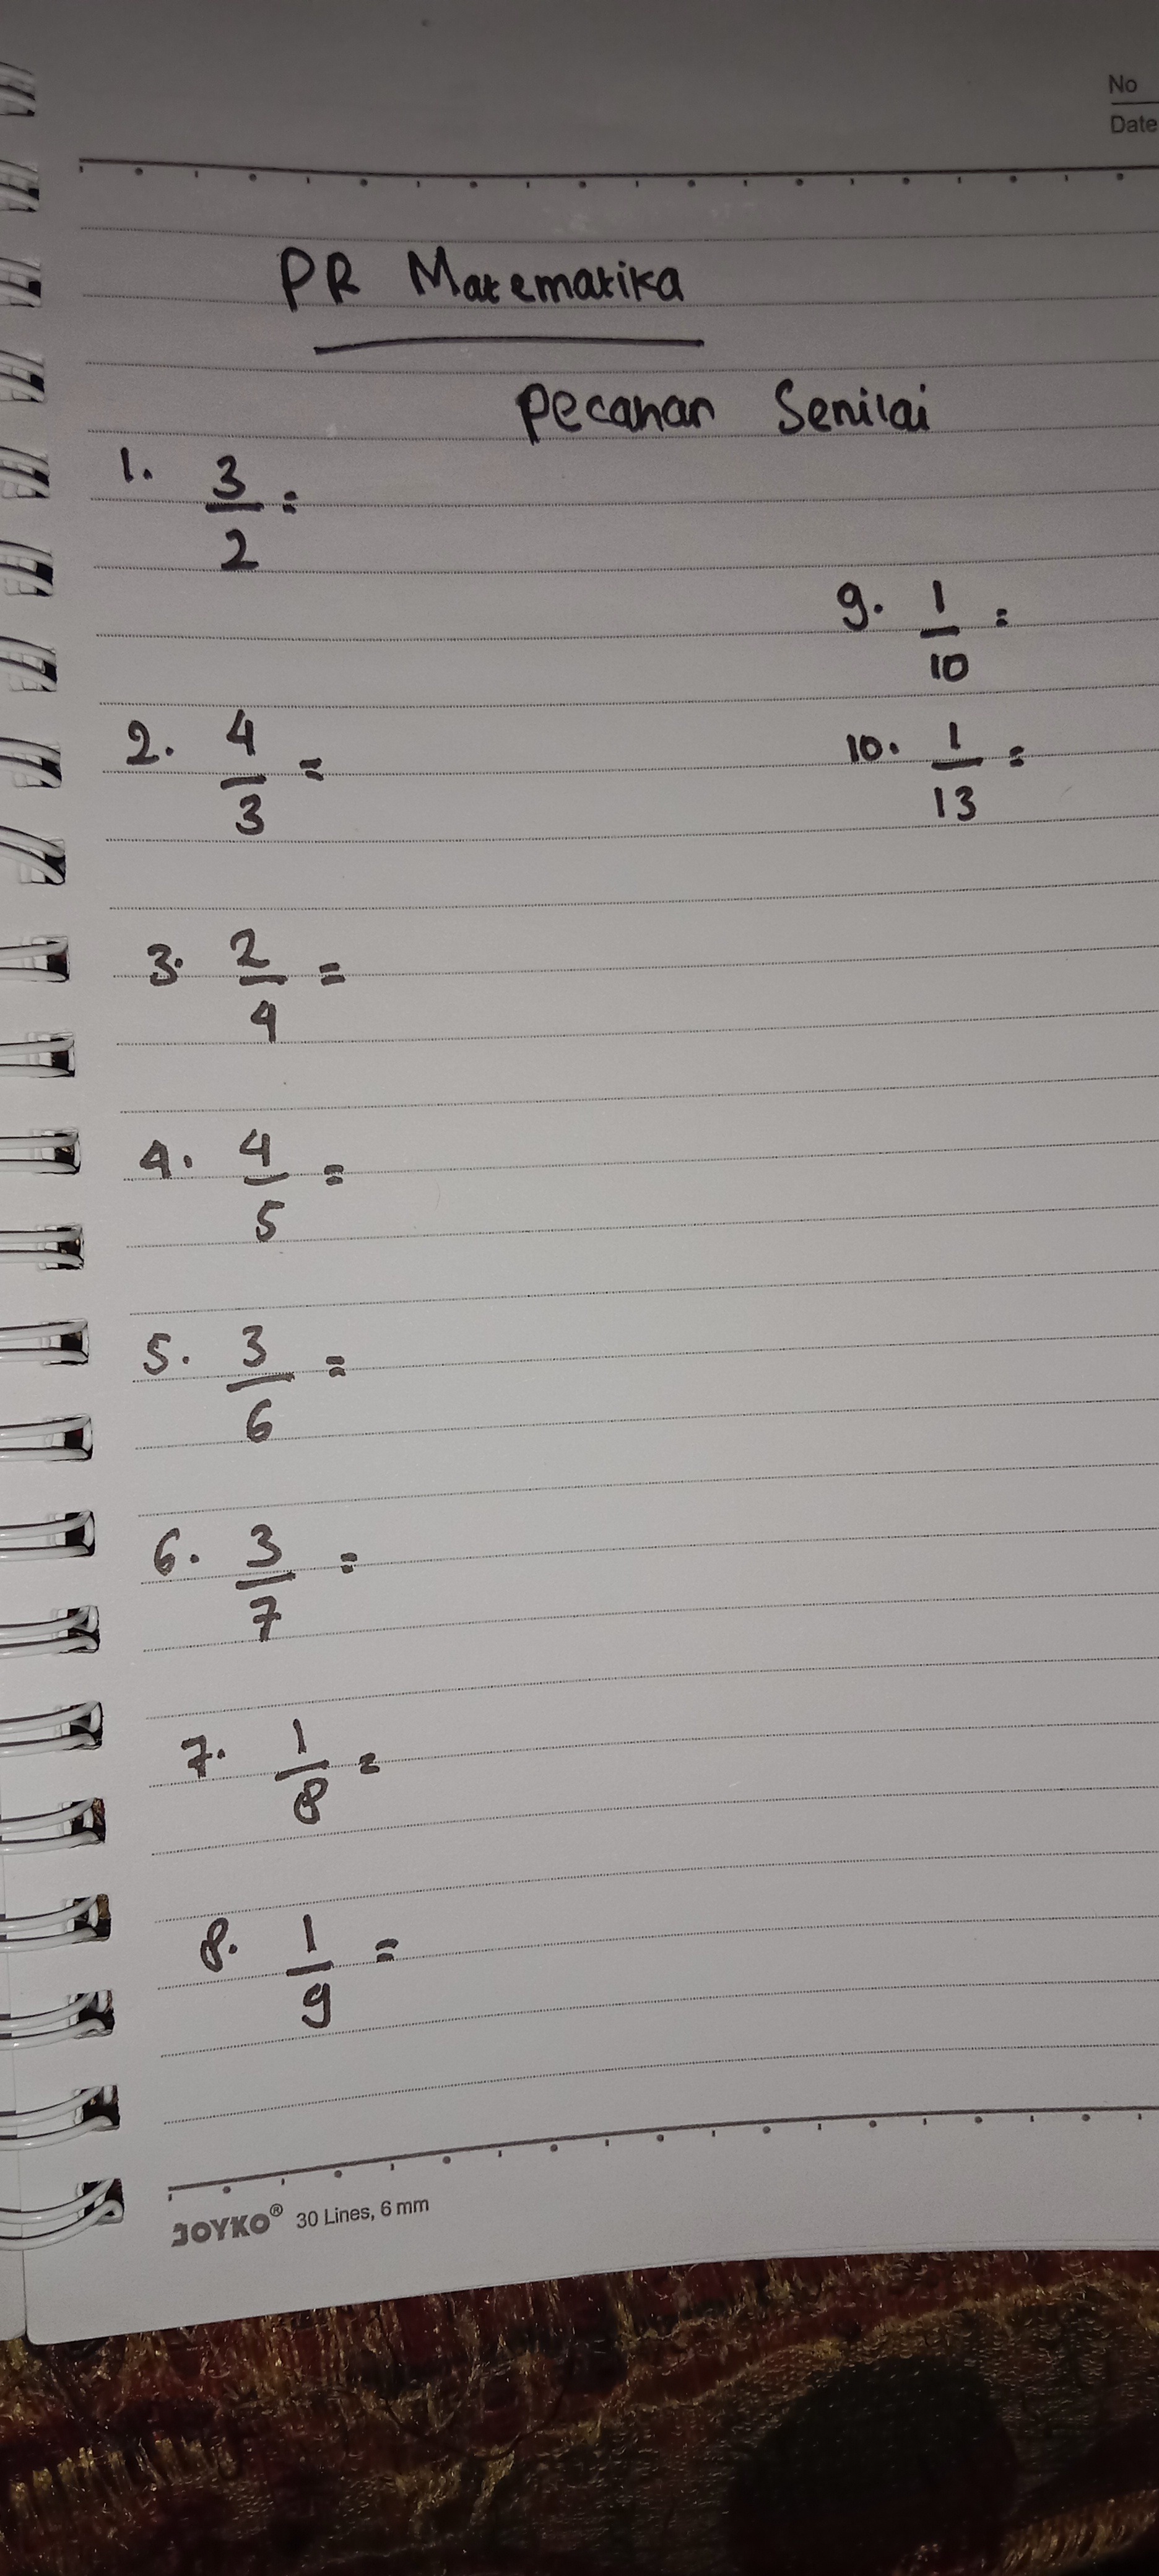 No
Date
PR Matematika
Pecahan Senilai
1. 3/2 =
2. 4/3 =
3. 2/4 =
4. 4/5 =
5. 3/6 =
6. 3/7 =
7. 1/8 =
8. 1/9 =
9. 1/10 =
10. 1/13 =
JOYKO® 30 Lines, 6 mm